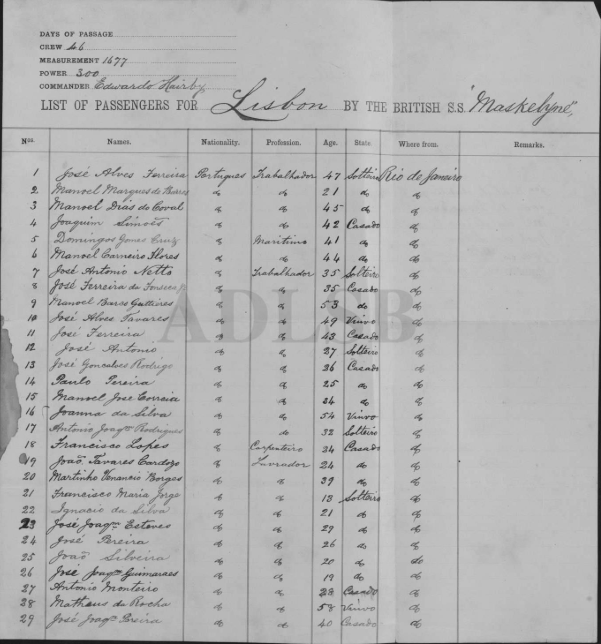 DAYS OF PASSAGE
CREW 46
MEASUREMENT 1677
POWER 300
COMMANDER Edwardo Hairby
LIST OF PASSENGERS FOR Lisbon BY THE BRITISH S.S. "Maskelyne",
Nos. Names. Nationality. Profession. Age. State Where from. Remarks.
1 José Alves Ferreira Portugues Trabalhador 47 Solteiro Rio de Janeiro
2 Manoel Marques de Barros do do 21 do do
3 Manoel Dias do Coval do do 45 do do
4 Joaquim Simões do do 42 Casado do
5 Domingos Gomes Cruz do Maritimo 41 do do
6 Manoel Carneiro Flores do do 44 do do
7 José Antonio Netto do Trabalhador 35 Solteiro do
8 José Ferreira da Fonseca do do 35 Casado do
9 Manoel Barros do do 53 do do
10 José Alves Tavares do do 49 Viuvo do
11 José Ferreira do do 43 Casado do
12 José Antonio do do 27 Solteiro do
13 José Goncalves Rodrigo do do 36 Casado do
14 Paulo Pereira do do 25 do do
15 Manoel José Correia do do 24 do do
16 Joanna da Silva do do 54 Viuvo do
17 Antonio Joaqm Rodrigues do do 32 Solteiro do
18 Francisco Lopes do Carpenteiro 34 Casado do
19 João Tavares Cardozo do Lavrador 24 do do
20 Martinho Venancio Borges do do 39 do do
21 Francisco Maria Jorge do do 13 Solteiro do
22 Ignacio da Silva do do 21 do do
23 José Joaqm Esteves do do 29 do do
24 José Pereira do do 26 do do
25 João Silveira do do 20 do do
26 José Joaqm Guimaraes do do 19 do do
27 Antonio Monteiro do do 28 Casado do
28 Matheus da Rocha do do 58 Viuvo do
29 José Joaqm Pereira do do 40 Casado do
ADLSB